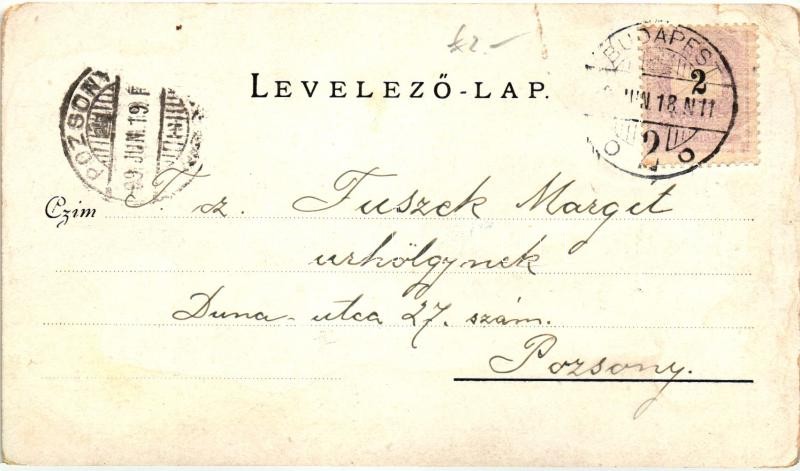 £2.-
LEVELEZŐ-LAP.
POZSONY
99 JUN. 19. F
BUDAPEST
JUN. 18. N 11
2
2
Czim
T. cz. Fuszek Margit
urhölgynek
Duna-utca 27. szám.
Pozsony.